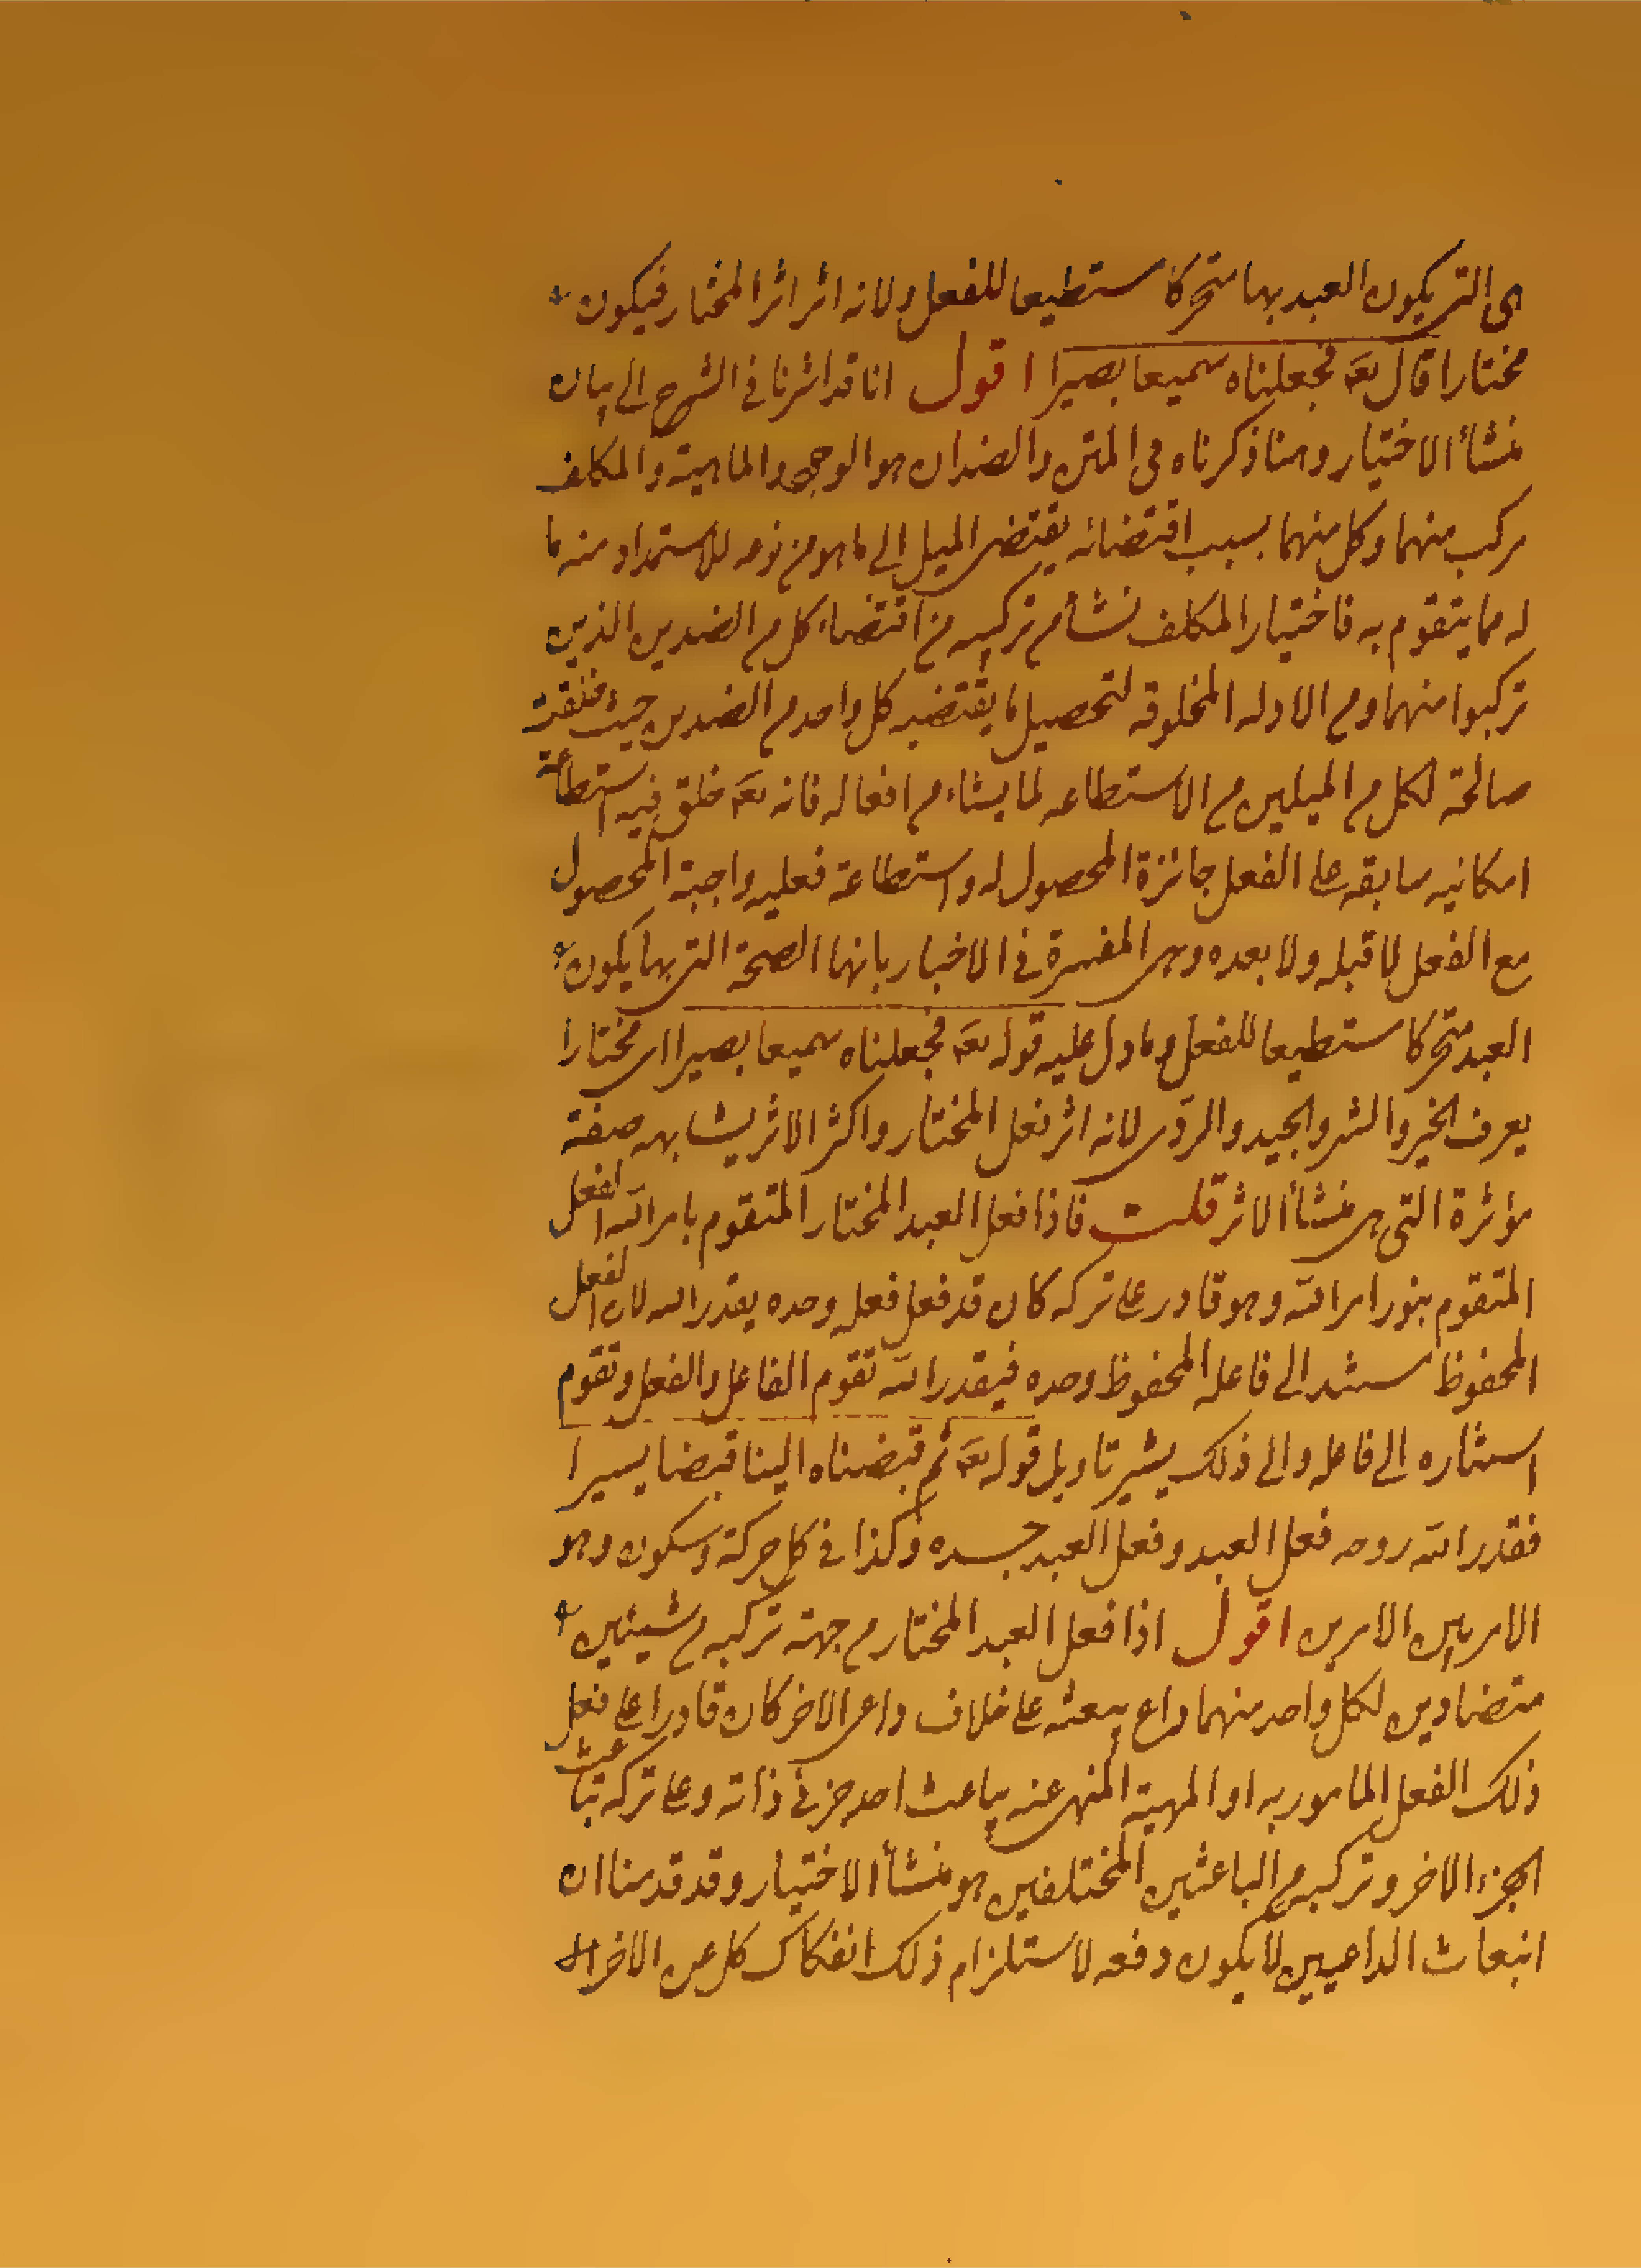 هى التى يكون العبد بها متحركا مستطيعا للفعل ولانه اثر اثر المختار فيكون
مختارا قال تعالى فجعلناه سميعا بصيرا اقول انا قد اشرنا فى الشرح الى بيان
منشأ الاختيار وهنا ذكرناه فى المتن والضدان هو الوجود والماهية والمكلف
مركب منهما وكل منهما بسبب اقتضائه يقتضى الميل الى ما هو من نوعه للاستمداد منه ما
له مما يتقوم به فاختيار المكلف نشأ من تركيبه من اقتضاء كل من الضدين الذين
تركبوا منهما ومن الاوله المخلوقه لتحصيل ما يقتضيه كل واحد من الضدين حيث خلقت
صالحة لكل من الميلين من الاستطاعه لما يشاء من افعاله فانه تعالى خلق فيه استطاعة
امكانيه سابقه على الفعل جائزة الحصول له واستطاعة فعليه واجبة الحصول
مع الفعل لا قبله ولا بعده وهى المفسرة فى الاخبار بانها الصحة التى بها يكون
العبد متحركا مستطيعا للفعل وما دل عليه قوله تعالى فجعلناه سميعا بصيرا اى مختارا
يعرف الخير والشر والجيد والردى لانه اثر فعل المختار واكثر الاثر يشابهه صفة
مؤثرة التى هى منشأ الاثر قلت فاذا فعل العبد المختار المتقوم بامر الله الفعل
المتقوم بنور امر الله وهو قادر على تركه كان قد فعل فعله وحده بقدر الله لان الفعل
المحفوظ مستند الى فاعله المحفوظ وحده فبقدر الله تقوم الفاعل والفعل وتقوم
استناره الى فاعله والى ذلك يشير تاويل قوله تعالى ثم قبضناه الينا قبضا يسيرا
فقدر الله روحه فعل العبد وفعل العبد جسده وكذا فى كل حركة وسكون وهو
الامر بين الامرين اقول اذا فعل العبد المختار من جهة تركبه من شيئين
متضادين لكل واحد منهما داع يبعثه على خلاف داعى الاخر كان قادرا على فعل
ذلك الفعل المامور به او المهية المنهى عنه بباعث احد جزئى ذاته وعلى تركه بباعث
الجزء الاخر وتركبه من الباعثين المختلفين هو منشأ الاختيار وقد قدمنا ان
انبعاث الداعيين لا يكون دفعه لاستلزام ذلك انفكاك كل عن الاخر